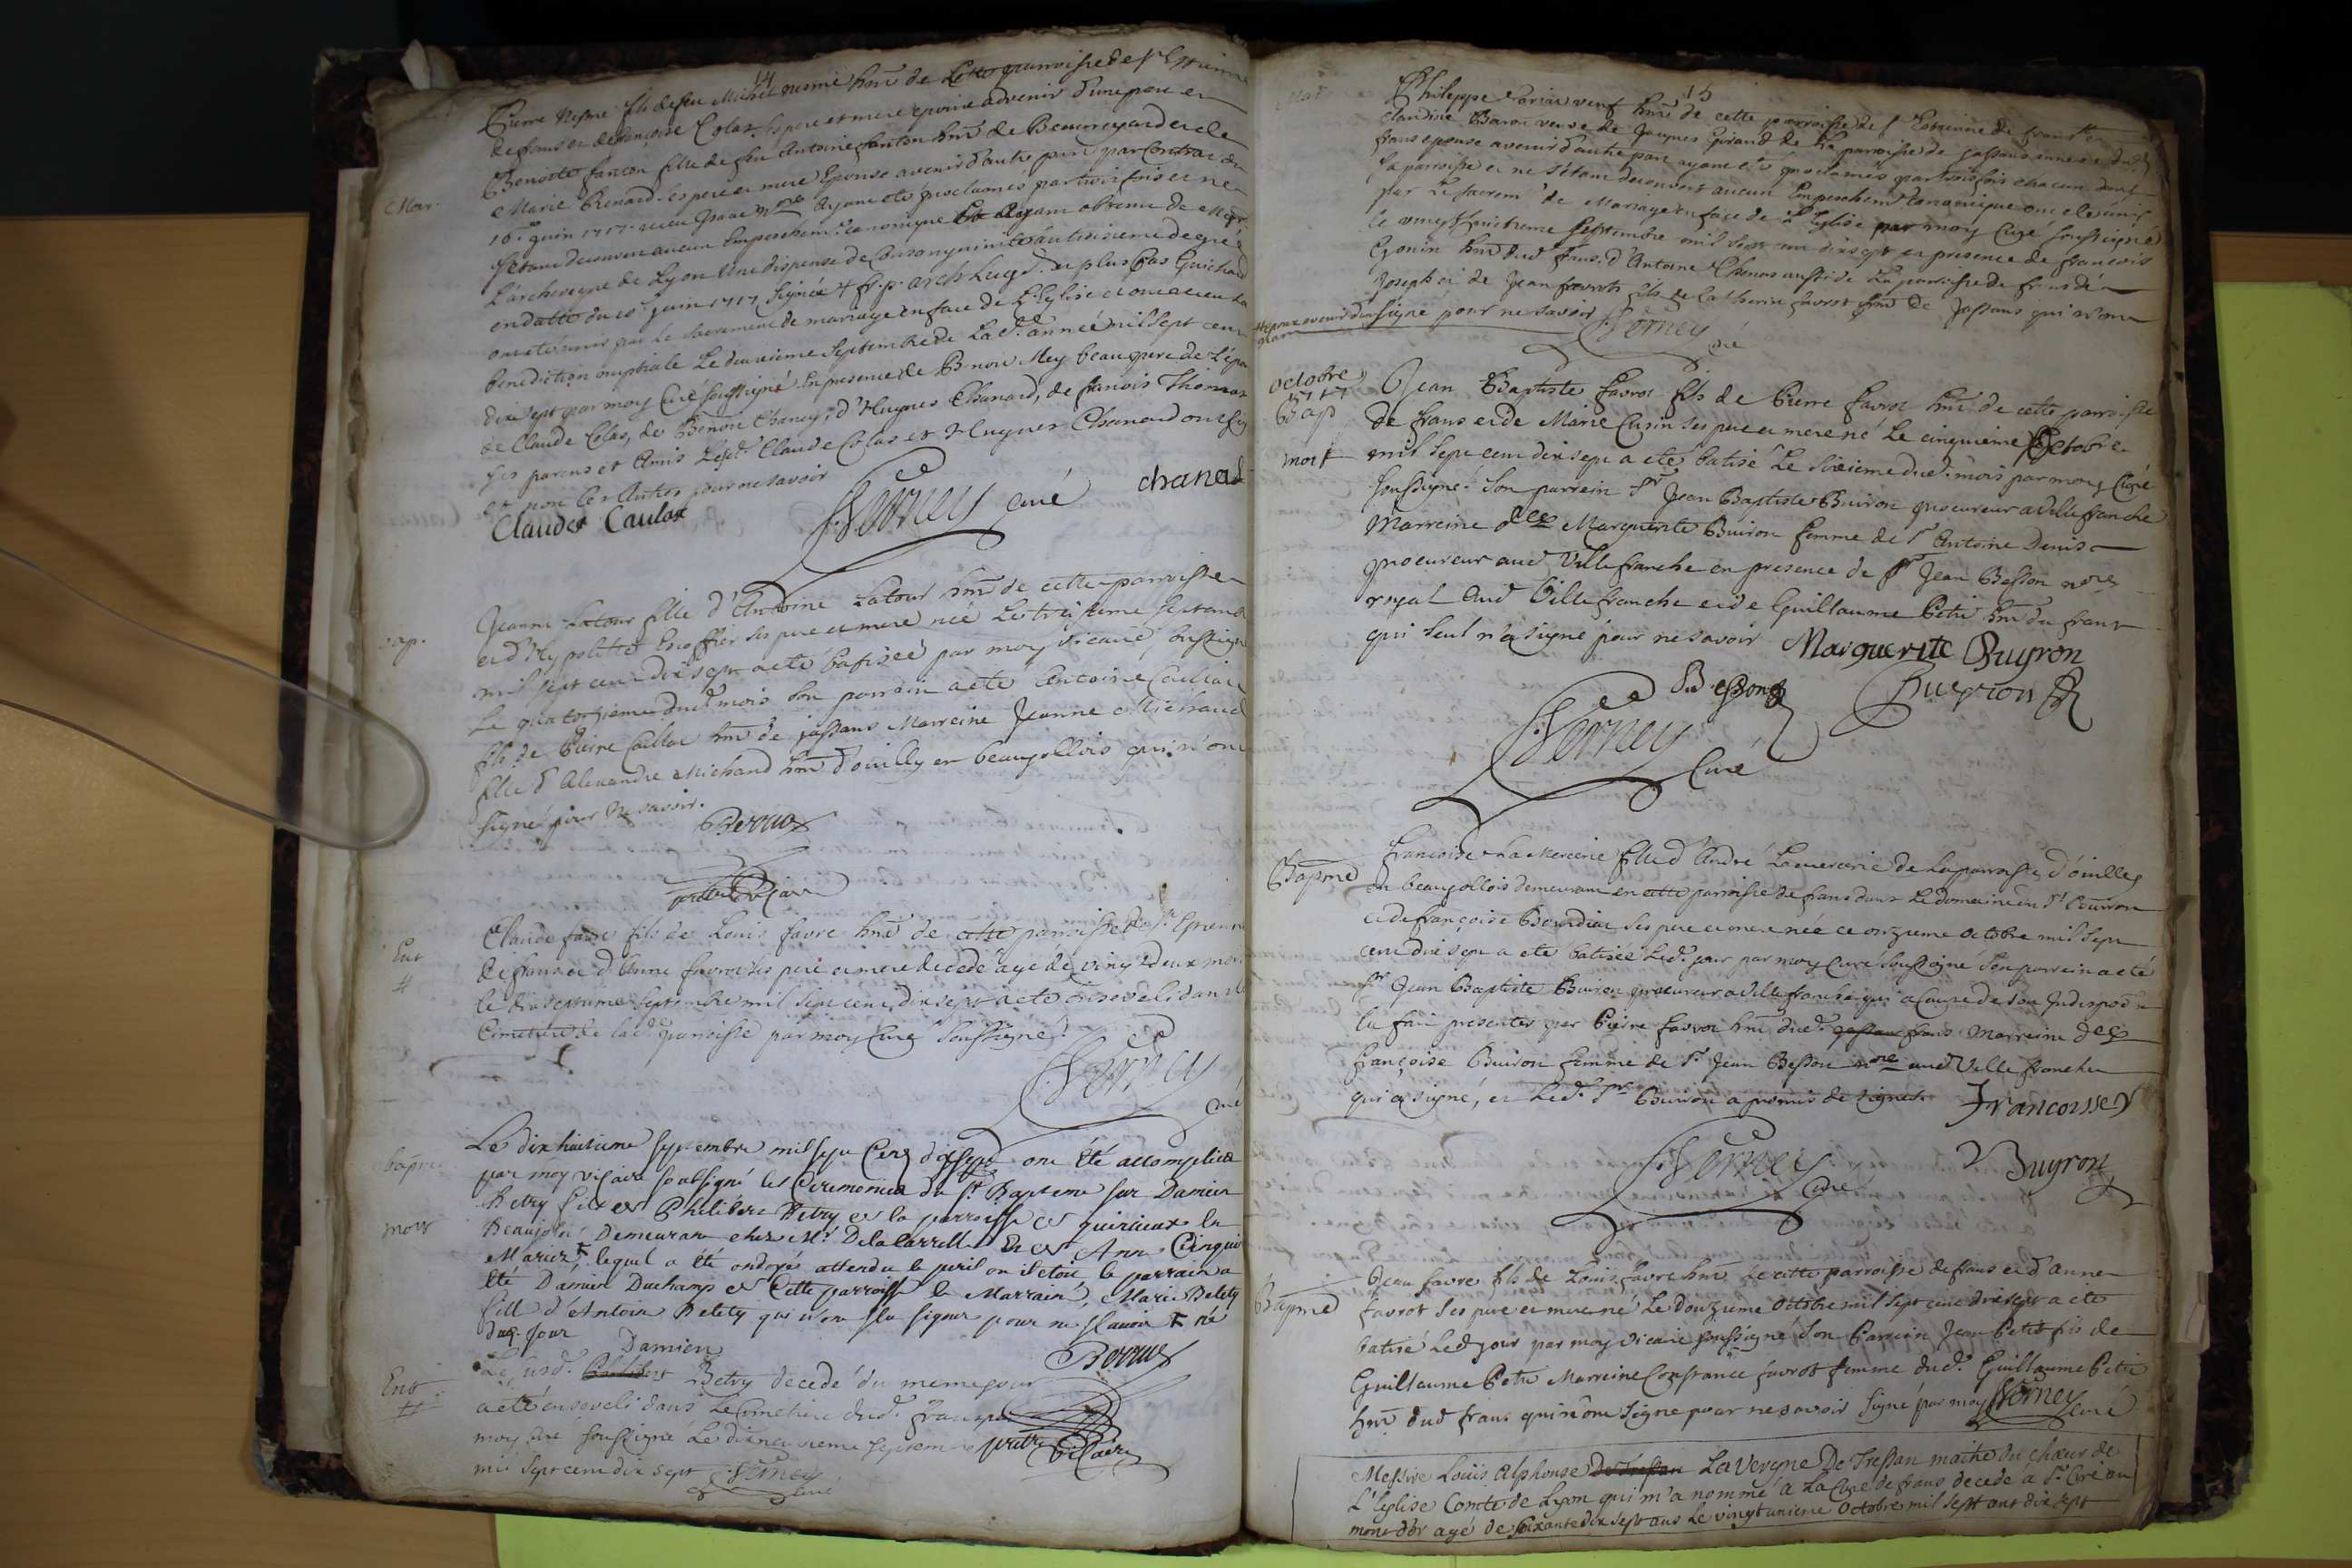 14
Pierre Mesme fils de feu Michel mesme hnt de Cette parroisse de St Estienne
de frans et de françoise Colas ses pere et mere epoux advenir d'une part et
Benoite fanton fille de feu Antoine fanton hnt de Beauregard et de
Mar. Marie Renard ses pere et mere Epouse avenir d'autre part par Contrat du
16e juin 1717 receu nre Ayant eté proclamés par trois fois et ne
s'etant decouvert aucun Empeschemt canonique Ayant obtenu de Mgr
L'archeveque de Lyon Une dispense de Consanguinité au troisieme degré
en datte du 10e juin 1717 Signée + fr. p. arch. Lugd. et plus bas Guichard
ont eté unis par le Sacrement de mariage en face de L'Eglise et ont receu La
benediction nuptiale Le deuxieme Septembre de Lad. année mil Sept cent
dix sept par moy Curé soussigné En presence de Benoit Mey beaupere de L'epoux
de Claude Colas, de Benoit Chaney, d'Hugues Chanard, de francois Thomas
ses parens et Amis Lesd. Claude Colas et Hugues Chanard ont sig
et non les Autres pour ne savoir
Claudes Caulas Verney curé chanard
Jeanne Latour fille d'Antoine Latour hnt de cette parroisse
bap. et d'Hypolitte ses pere et mere née Le treisieme Septembre
mil sept cent dix sept a eté batisée par moy vicaire soussigné
Le quatorzieme dud. mois Son parrain a eté Antoine
fils de Pierre hnt de jassans Marreine Jeanne Michaud
fille d'Alexandre Michaud hnt d'ouilly en beaujollois qui n'ont
signé pour ne savoir.
pretre Vicaire
Claude favre fils de Louis favre hnt de cette parroisse de St Etienne
Ent de frans et d'Anne favrot ses pere et mere decedé agé de vingt deux mois
# le dix septieme Septembre mil sept cent dix sept a eté ensoveli dans le
Cimetiere de lad. parroisse par moy Curé Soussigné
Verney
curé
bapme Le dix huitieme septembre mil sept Cent dix sept ont été accomplies
par moy vicaire soussigné les Ceremonies du St Bapteme sur Damien
Betry fils de Philibert Betry de la parroisse de quincieux en
mort Beaujolois Demeurant chez Mr Delacarrelle Et de Anne
Mariez + lequel a été ondoyé attendu le peril ou il etoit le parrain a
été Damien Duchamp de Cette parroisse la Marraine Marie Betety
fille d'Antoine Betety qui n'ont sçu signer pour ne sçavoir + né
dud. Jour
Damien
Le susd. Philibert Betry decedé du meme jour
Ent a eté enseveli dans Le Cimetiere dud. frans par
# moy curé soussigné Le dix neuvieme septembre pretre Vicaire
mil sept cent dix sept Verney
curé
15
Mar. Philippe veuf hnt de cette parroisse de St Estienne de frans et
Claudine Baron veuve de Jaques Giraud de La parroisse de jassans annexe dud.
frans epouse avenir d'autre part ayant eté proclamés par trois fois chacun dans
sa parroisse et ne s'étant decouvert aucun Empeschemt Canonique ont eté unis
par Le Sacremt de Mariage en face de L'Eglise par moy Curé soussigné
le vingt huitieme Septembre mil sept cent dix sept en presence de francois
Gonin hnt dud. frans, d'Antoine Thomas aussi de La parroisse de frans de
Joseph et de Jean favrot fils de Catherin favrot hnt de Jassans qui n'ont
signé pour ne savoir Verney
curé
octobre
1717
Bap Jean Baptiste favrot fils de Pierre favrot hnt de cette parroisse
de frans et de Marie Cusin ses pere et mere né Le cinquieme Octobre
mort mil sept cent dix sept a eté batisé Le Sixieme dud. mois par moy Curé
soussigné Son parrein Sr Jean Baptiste Buiron procureur a Villefranche
Marreine dlle Marguerite Buiron femme de Sr Antoine Denis
procureur aud. Villefranche en presence de Sr Jean Besson nre
royal Aud. Villefranche et de Guillaume Petit hnt du frans
qui seul n'a signé pour ne savoir Marguerite Buyron
Besson Bueyron
Verney
Curé
Bapme françoise La Mercerie fille d'André Lamercerie de La parroisse d'ouilles
en beaujollois demeurant en cette parroisse de frans dans Le domaine du Sr Buiron
et de françoise Bourdin ses pere et mere née ce onzieme Octobre mil sept
cent dix sept a eté batisée Led. jour par moy Curé soussigné Son parrein a eté
Sr Jean Baptiste Buiron procureur a Villefranche qui a Cause de son Indisposon
la fait presenter par Pierre favrot hnt dud. frans Marreine dlle
françoise Buiron femme de Sr Jean Besson nre aud. Villefranche
qui a signé, et Led. Sr Buiron a promis de signer. Francoisse
Verney Buyron
Curé
Jean favre fils de Louis favre hnt de cette parroisse de frans et d'anne
Bapme favrot ses pere et mere né Le douzieme Octobre mil sept cent dix sept a eté
batisé Led. jour par moy vicaire soussigné Son Parrein Jean Petit fils de
Guillaume Petit Marreine Constance favrot femme dud. Guillaume Petit
hnt dud. frans qui n'ont signé pour ne savoir Signé par moy Verney
curé
Messire Loüis Alphonse De Tressan La Vergne De Tressan maitre du chœur de
L'Eglise Comte de Lyon qui m'a nommé a La Cure de frans decede a St Ciré au
mont d'or agé de soixante dix sept ans Le vingt unieme Octobre mil sept cent dix sept